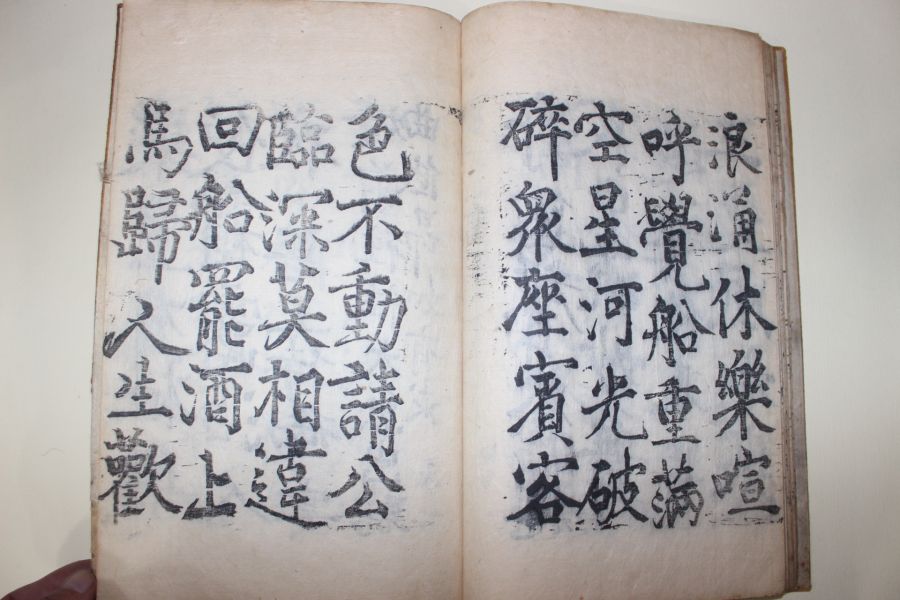 浪涌休樂喧
呼覺船重滿
空星河光破
碎衆座賓客
色不動請公
臨深莫相違
回船罷酒上
馬歸人生歡